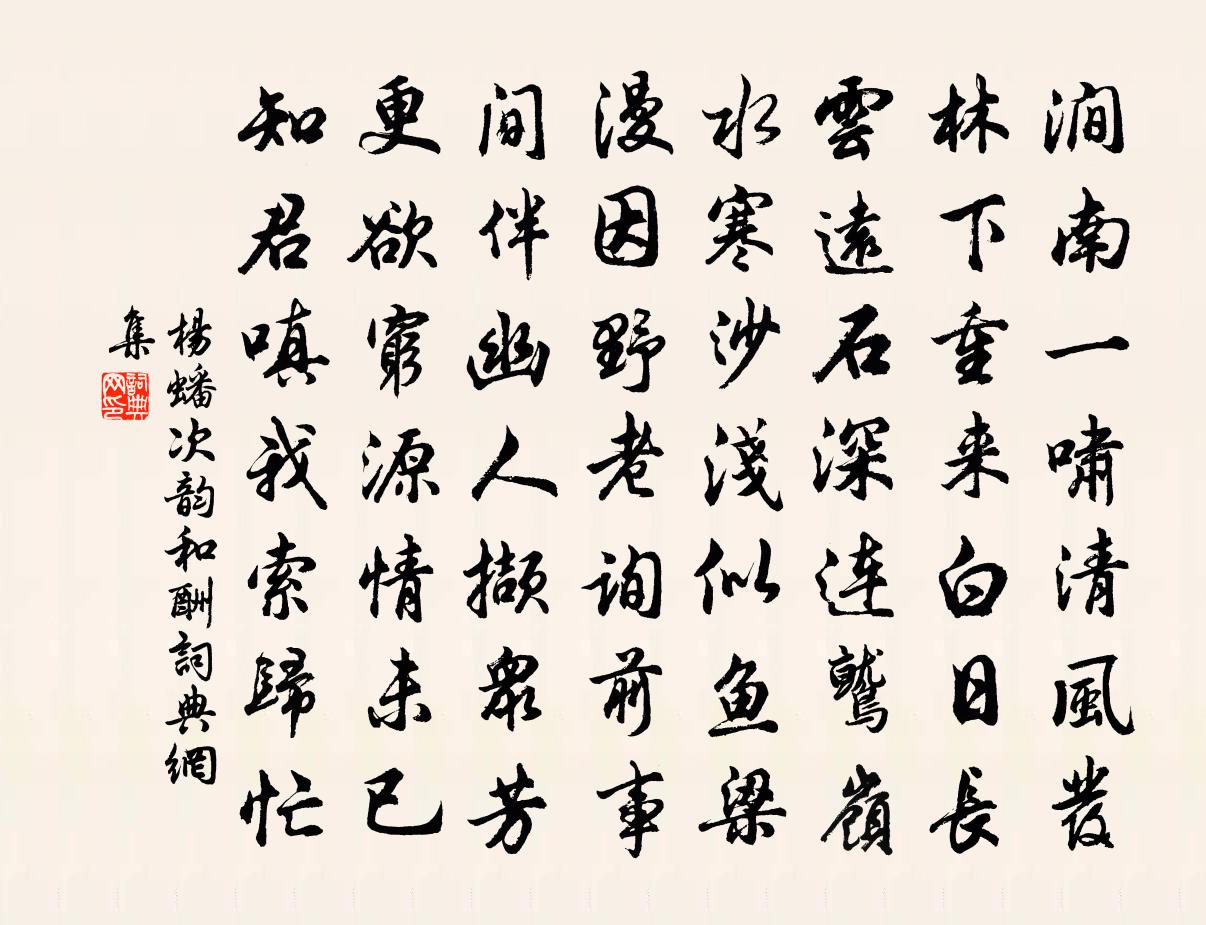 澗南一嘯清風發
林下重来白日長
雲遠石深連鷲嶺
水寒沙淺似鱼梁
漫因野老詢前事
间伴幽人擷衆芳
更欲窮源情未已
知君嗔我索歸忙
楊蟠次韵和酬詞典網
集
詞典
网印